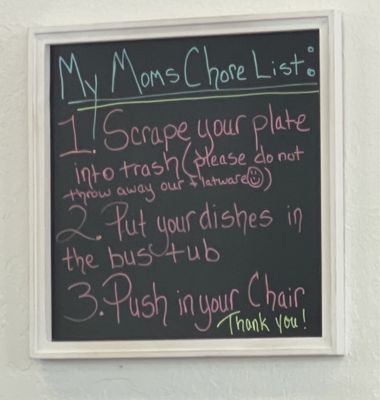 My Moms Chore List:
1. Scrape your plate
into trash (please do not
throw away our flatware☺))
2. Put your dishes in
the bus tub
3. Push in your Chair
Thank you!